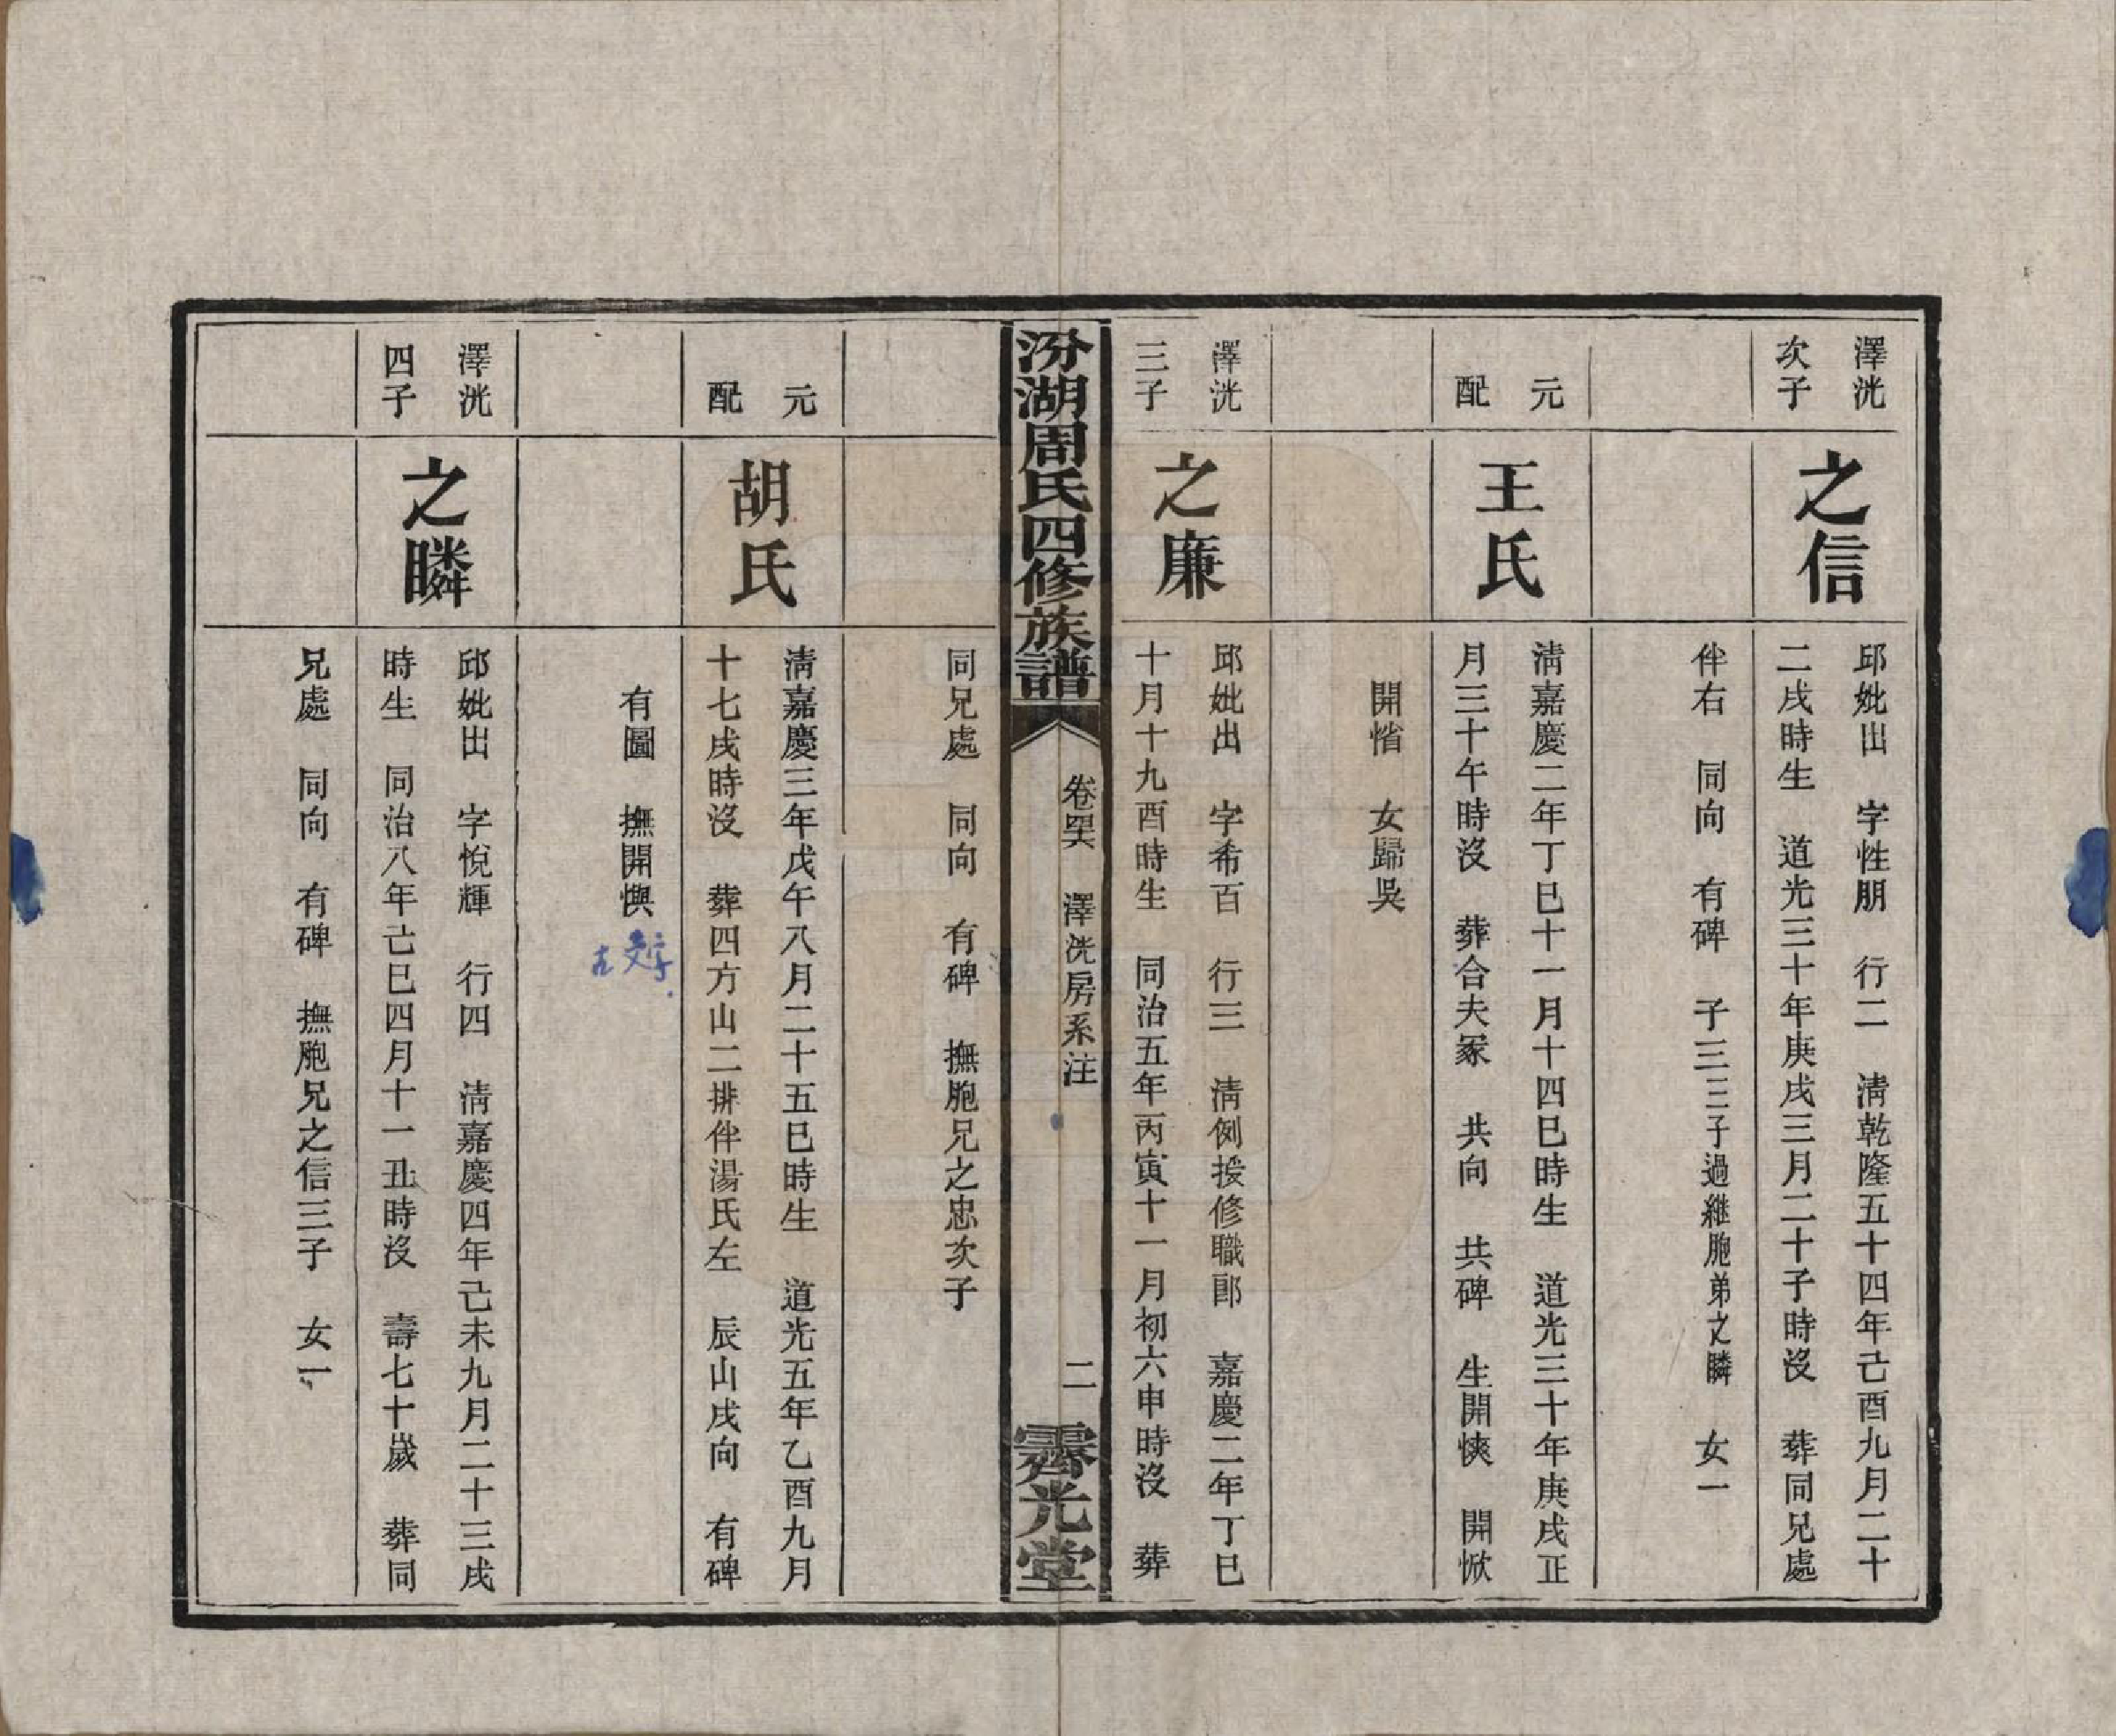 澤洸
次子
之信
邱妣出　字性朋　行二　清乾隆五十四年己酉九月二十
二戌時生　道光三十年庚戌三月二十子時沒　葬同兄處
伴右　同向　有碑　子三三子過継胞弟之瞵　女一
元
配
王氏
清嘉慶二年丁巳十一月十四巳時生　道光三十年庚戌正
月三十午時沒　葬合夫冢　共向　共碑　生開㥦　開惞
開惰　女歸吳
澤洸
三子
之廉
邱妣出　字希百　行三　清例授修職郎　嘉慶二年丁巳
十月十九酉時生　同治五年丙寅十一月初六申時沒　葬
同兄處　同向　有碑　撫胞兄之忠次子
汾湖周氏四修族譜
卷四六　澤洸房系注
二
霽光堂
元
配
胡氏
清嘉慶三年戊午八月二十五巳時生　道光五年乙酉九月
十七戌時沒　葬四方山二排伴湯氏左　辰山戌向　有碑
有圖　撫開懊
澤洸
四子
之瞵
邱妣出　字悅輝　行四　清嘉慶四年己未九月二十三戌
時生　同治八年己巳四月十一丑時沒　壽七十歲　葬同
兄處　同向　有碑　撫胞兄之信三子　女一